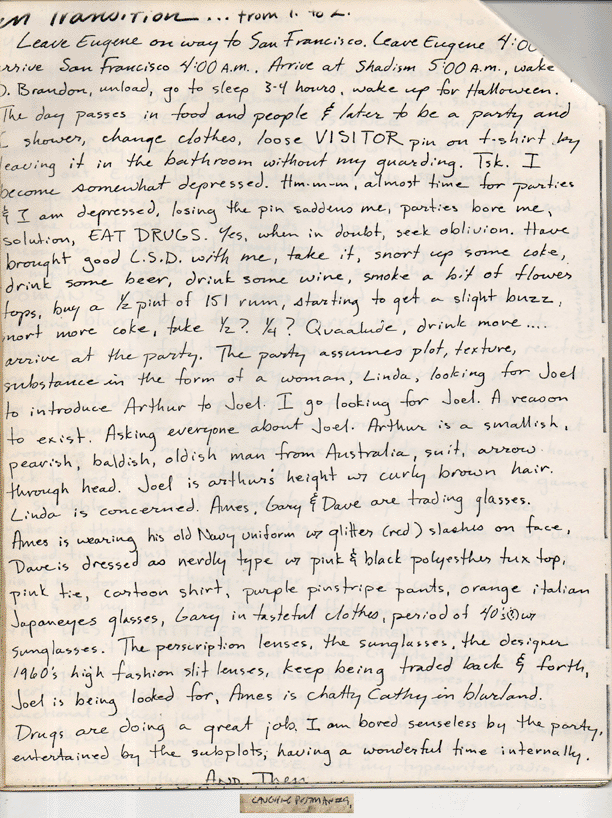 en Transition ... from 1. to 2.
Leave Eugene on way to San Francisco. Leave Eugene 4:00
rrive San Francisco 4:00 A.M., Arrive at Shadism 5:00 A.M., wake
D. Brandon, unload, go to sleep 3-4 hours, wake up for Halloween.
The day passes in food and people & later to be a party and
I shower, change clothes, loose VISITOR pin on t-shirt by
leaving it in the bathroom without my guarding. Tsk. I
become somewhat depressed. Hm-m-m, almost time for parties
& I am depressed, losing the pin saddens me, parties bore me,
solution, EAT DRUGS. Yes, when in doubt, seek oblivion. Have
brought good L.S.D. with me, take it, snort up some coke,
drink some beer, drink some wine, smoke a bit of flower
tops, buy a 1/2 pint of 151 rum, starting to get a slight buzz,
snort more coke, take 1/2? 1/4? Quaalude, drink more....
arrive at the party. The party assumes plot, texture,
substance in the form of a woman, Linda, looking for Joel
to introduce Arthur to Joel. I go looking for Joel. A reason
to exist. Asking everyone about Joel. Arthur is a smallish,
pearish, baldish, oldish man from Australia, suit, arrow
through head. Joel is arthur's height w/ curly brown hair.
Linda is concerned. Ames, Gary & Dave are trading glasses.
Ames is wearing his old Navy uniform w/ glitter (red) slashes on face,
Dave is dressed as nerdly type w/ pink & black polyesther tux top,
pink tie, cartoon shirt, purple pinstripe pants, orange italian
Japaneyes glasses, Gary in tasteful clothes, period of 40's w/
sunglasses. The perscription lenses, the sunglasses, the designer
1960's high fashion slit lenses, keep being traded back & forth,
Joel is being looked for, Ames is chatty Cathy in blurland.
Drugs are doing a great job. I am bored senseless by the party,
entertained by the subplots, having a wonderful time internally.
AND Then